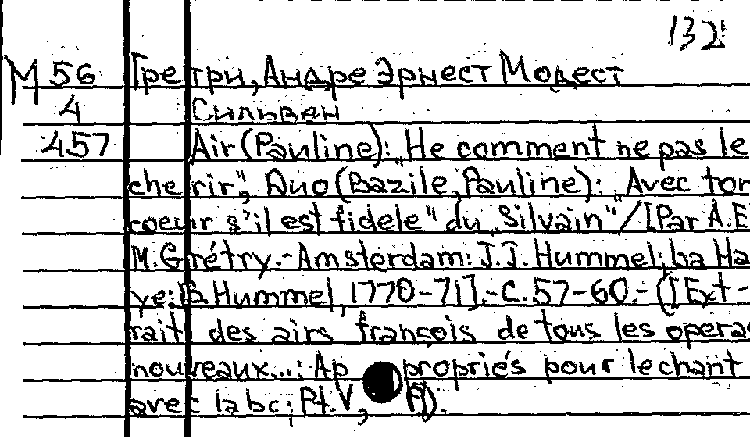 132
М 56 Гретри, Андре Эрнест Модест
4 Сильвен
457 Air (Pauline): „He comment ne pas le
cherir", Duo (Bazile, Pauline): „Avec ton
coeur s'il est fidele" du „Silvain" / [Par A.E.
M. Grétry.- Amsterdam: J.J. Hummel; La Ha
ye: B. Hummel, 1770-71].- C. 57-60.- ([Ext-
rait] des airs françois de tous les operas
nouveaux...: Appropriés pour le chant
avec la bc; Pt. V,